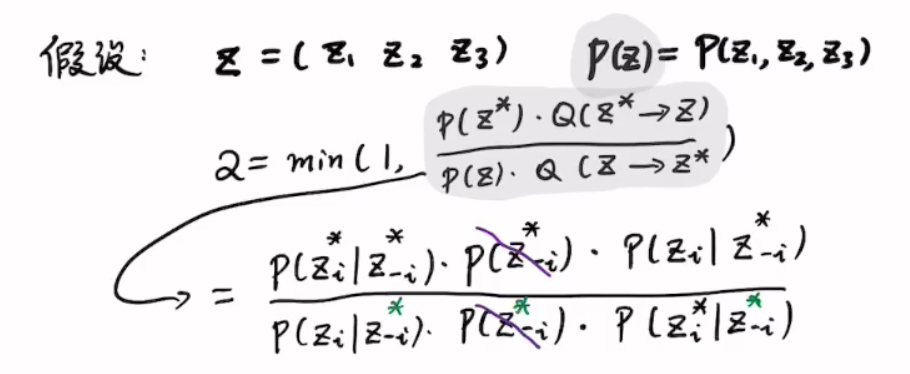 假设: z = ( z₁ z₂ z₃ ) P(z) = P(z₁, z₂, z₃)
α = min( 1, \frac{P(z^*) · Q(z^* → z)}{P(z) · Q(z → z^*} )
= \frac{P(z_i^* | z_{-i}^*) · P(z_{-i}^*) · P(z_i | z_{-i}^*)}{P(z_i | z_{-i}^*) · P(z_{-i}^*) · P(z_i^* | z_{-i}^*)}